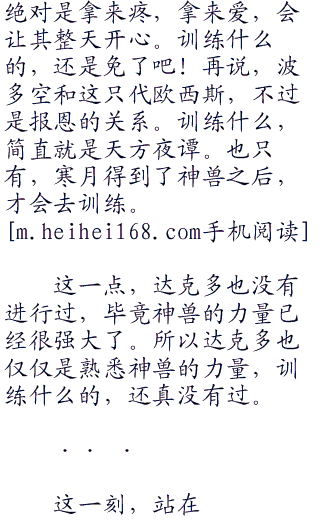 绝对是拿来疼，拿来爱，会
让其整天开心。训练什么
的，还是免了吧！再说，波
多空和这只代欧西斯，不过
是报恩的关系。训练什么，
简直就是天方夜谭。也只
有，寒月得到了神兽之后，
才会去训练。
[m.heihei168.com手机阅读]
这一点，达克多也没有
进行过，毕竟神兽的力量已
经很强大了。所以达克多也
仅仅是熟悉神兽的力量，训
练什么的，还真没有过。
．．．
这一刻，站在